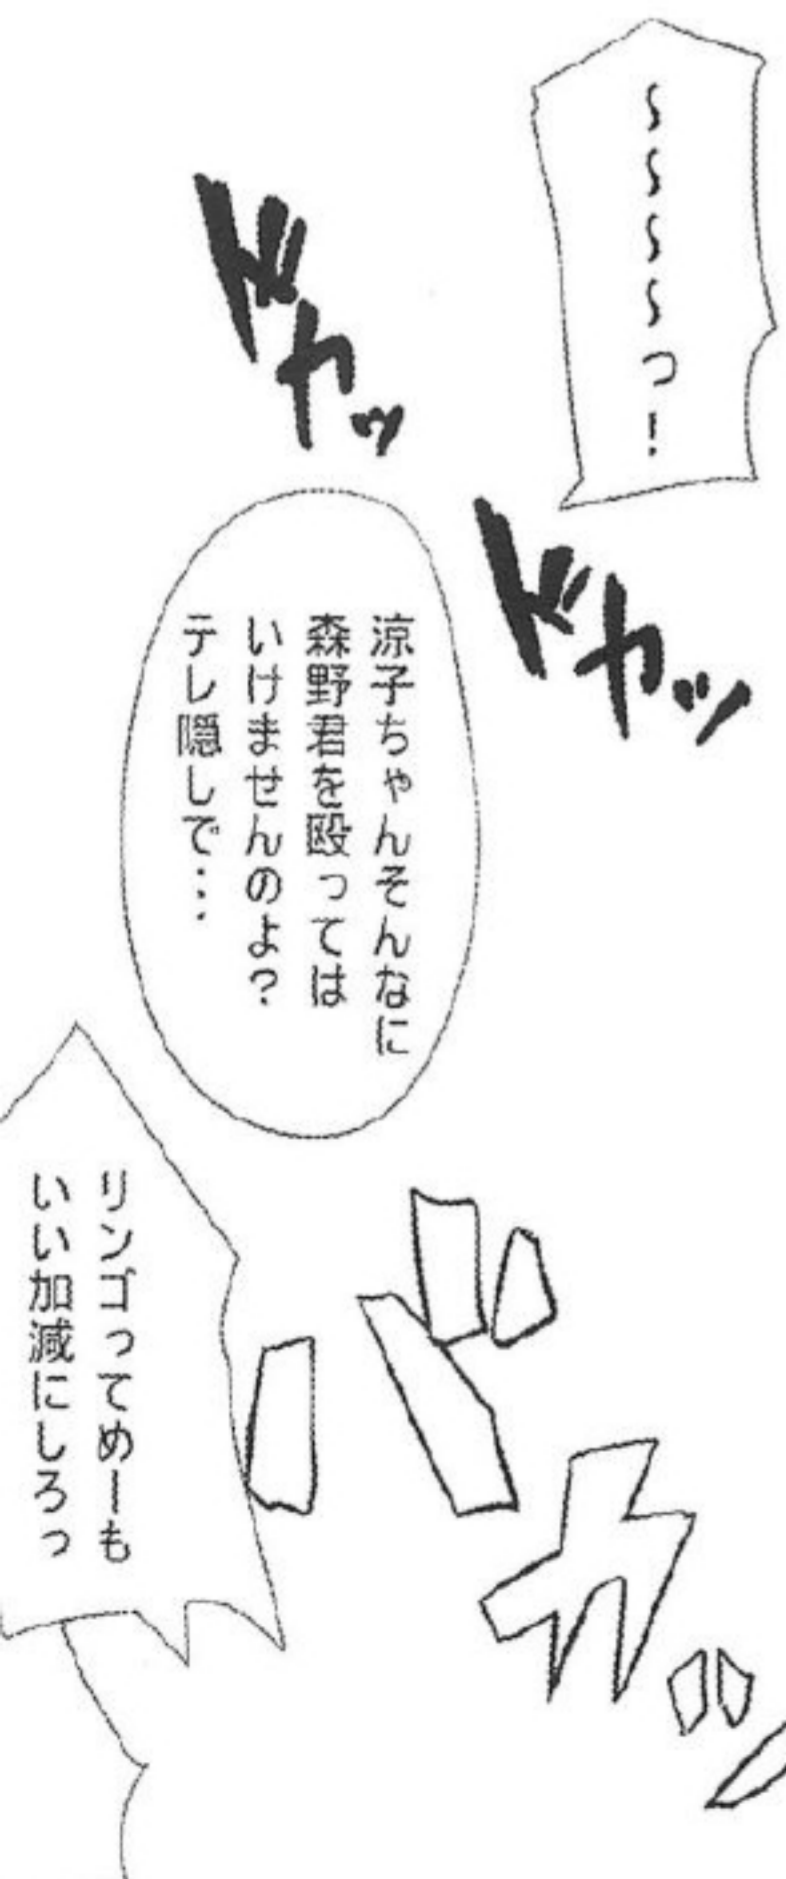 ～～～～っ！
ドカッ
ドカッ
涼子ちゃんそんなに
森野君を殴っては
いけませんのよ？
テレ隠しで…
ドカッ
リンゴってめーも
いい加減にしろっ